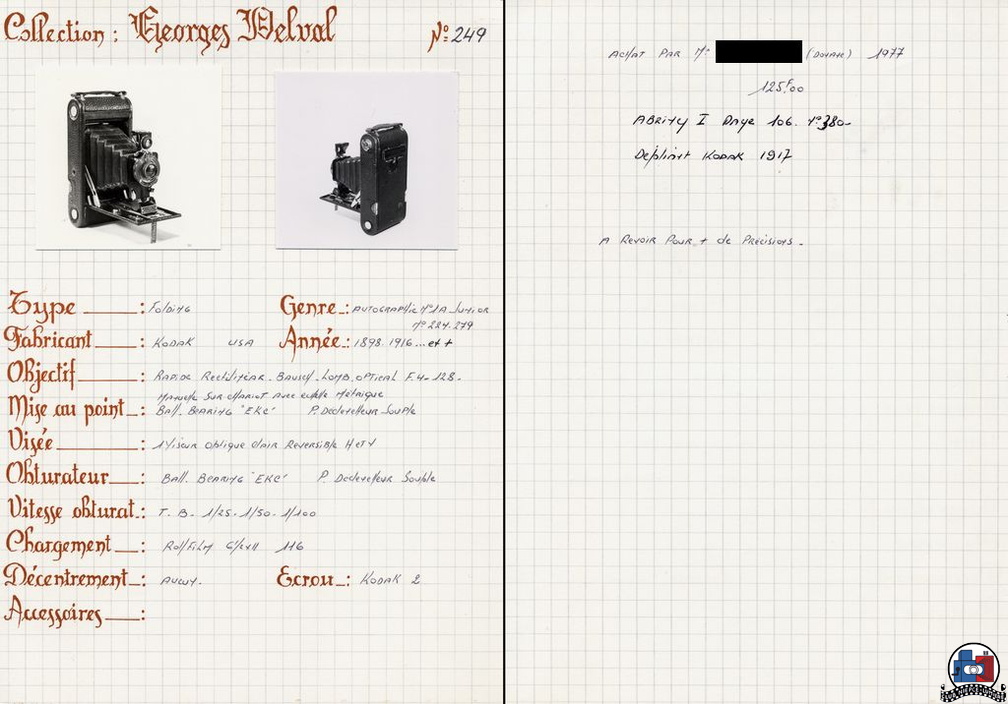 Collection : Georges Delval Nº 249
Type : Folding
Genre : Autographic Nº1A Junior
Nº 224.279
Fabricant : Kodak USA
Année : 1898. 1916... et +
Objectif : Rapide Rectilinéar. Bausch. Lomb. Optical F.4-128.
Manuelle sur chariot avec echelle métrique
Mise au point : Ball. Bearing "EKC" P. Declencheur Souple
Visée : 1 Viseur oblique clair Reversible H et V
Obturateur : Ball. Bearing "EKC" P. Declencheur Souple
Vitesse obturat. : T. B. 1/25. 1/50. 1/100
Chargement : Rollfilm 116
Décentrement : Aucun.
Ecrou : Kodak 2
Accessoires :
Achat par Mr (Douane) 1977
125F00
Page 106. Nº 380
Kodak 1917
A Revoir Pour + de Précisions.